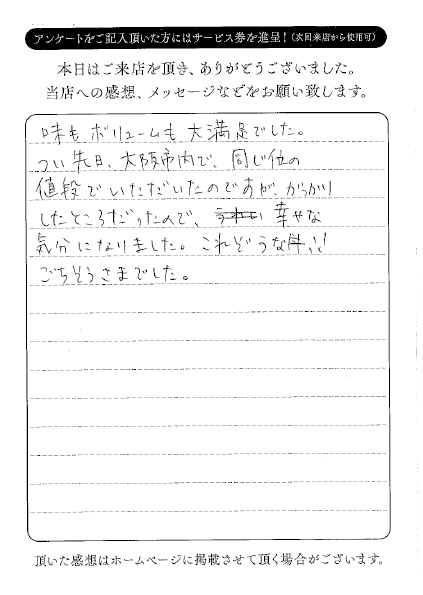 アンケートをご記入頂いた方にはサービス券を進呈！(次回来店から使用可)
本日はご来店を頂き、ありがとうございました。
当店への感想、メッセージなどをお願い致します。
味もボリュームも大満足でした。
つい先日、大阪市内で、同じ位の
値段でいただいたのですが、がっかり
したところだったので、幸せな
気分になりました。これぞうな丼!!
ごちそうさまでした。
頂いた感想はホームページに掲載させて頂く場合がございます。